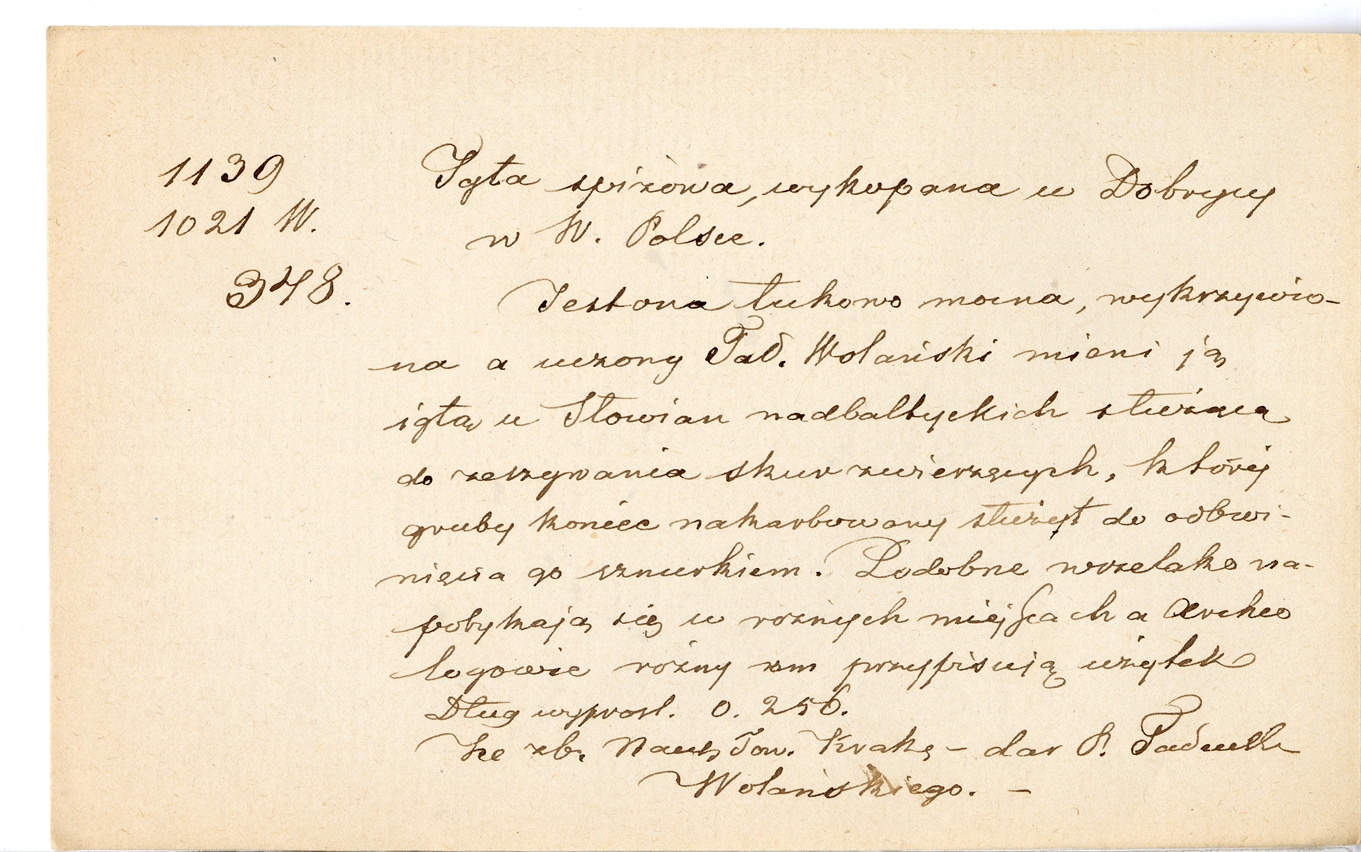 1139
1021 W.
348.
Igła spiżowa, wykopana w Dobrzycy
w W. Polsce.
Jest ona łukowo mocna, wykrzywio-
na a uczony Tad. Wolański mieni ją
igłą u Słowian nadbaltyckich służącą
do zeszywania skur zwierzęcych, której
gruby koniec nakarbowany służył do odbwi-
nięcia go sznurkiem. Podobne wszelako na-
potykają się w rożnych miejscach a Archeo
logowie rożny im przypisują użytek
Dług wyprost. 0.256.
Ze zb. Nauk, Tow. Krak, – dar P. Tadeusza
Wolańskiego. –